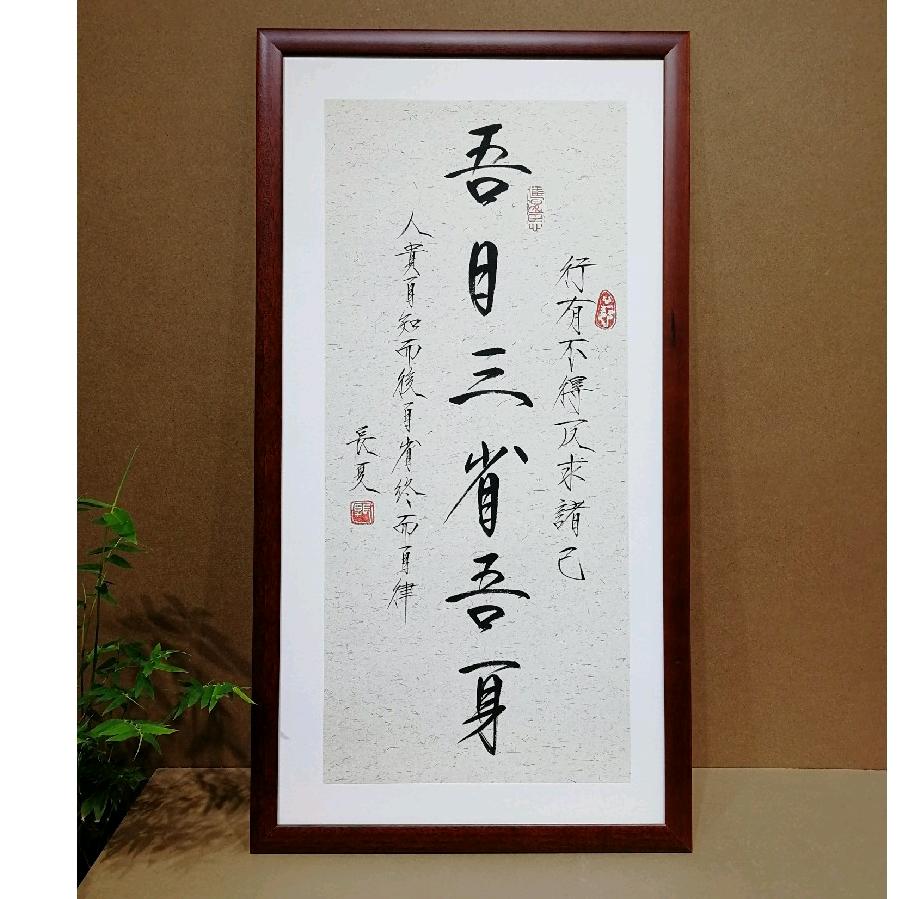 行有不得反求諸己
吾日三省吾身
人貴自知而後自省終而自律
長夏